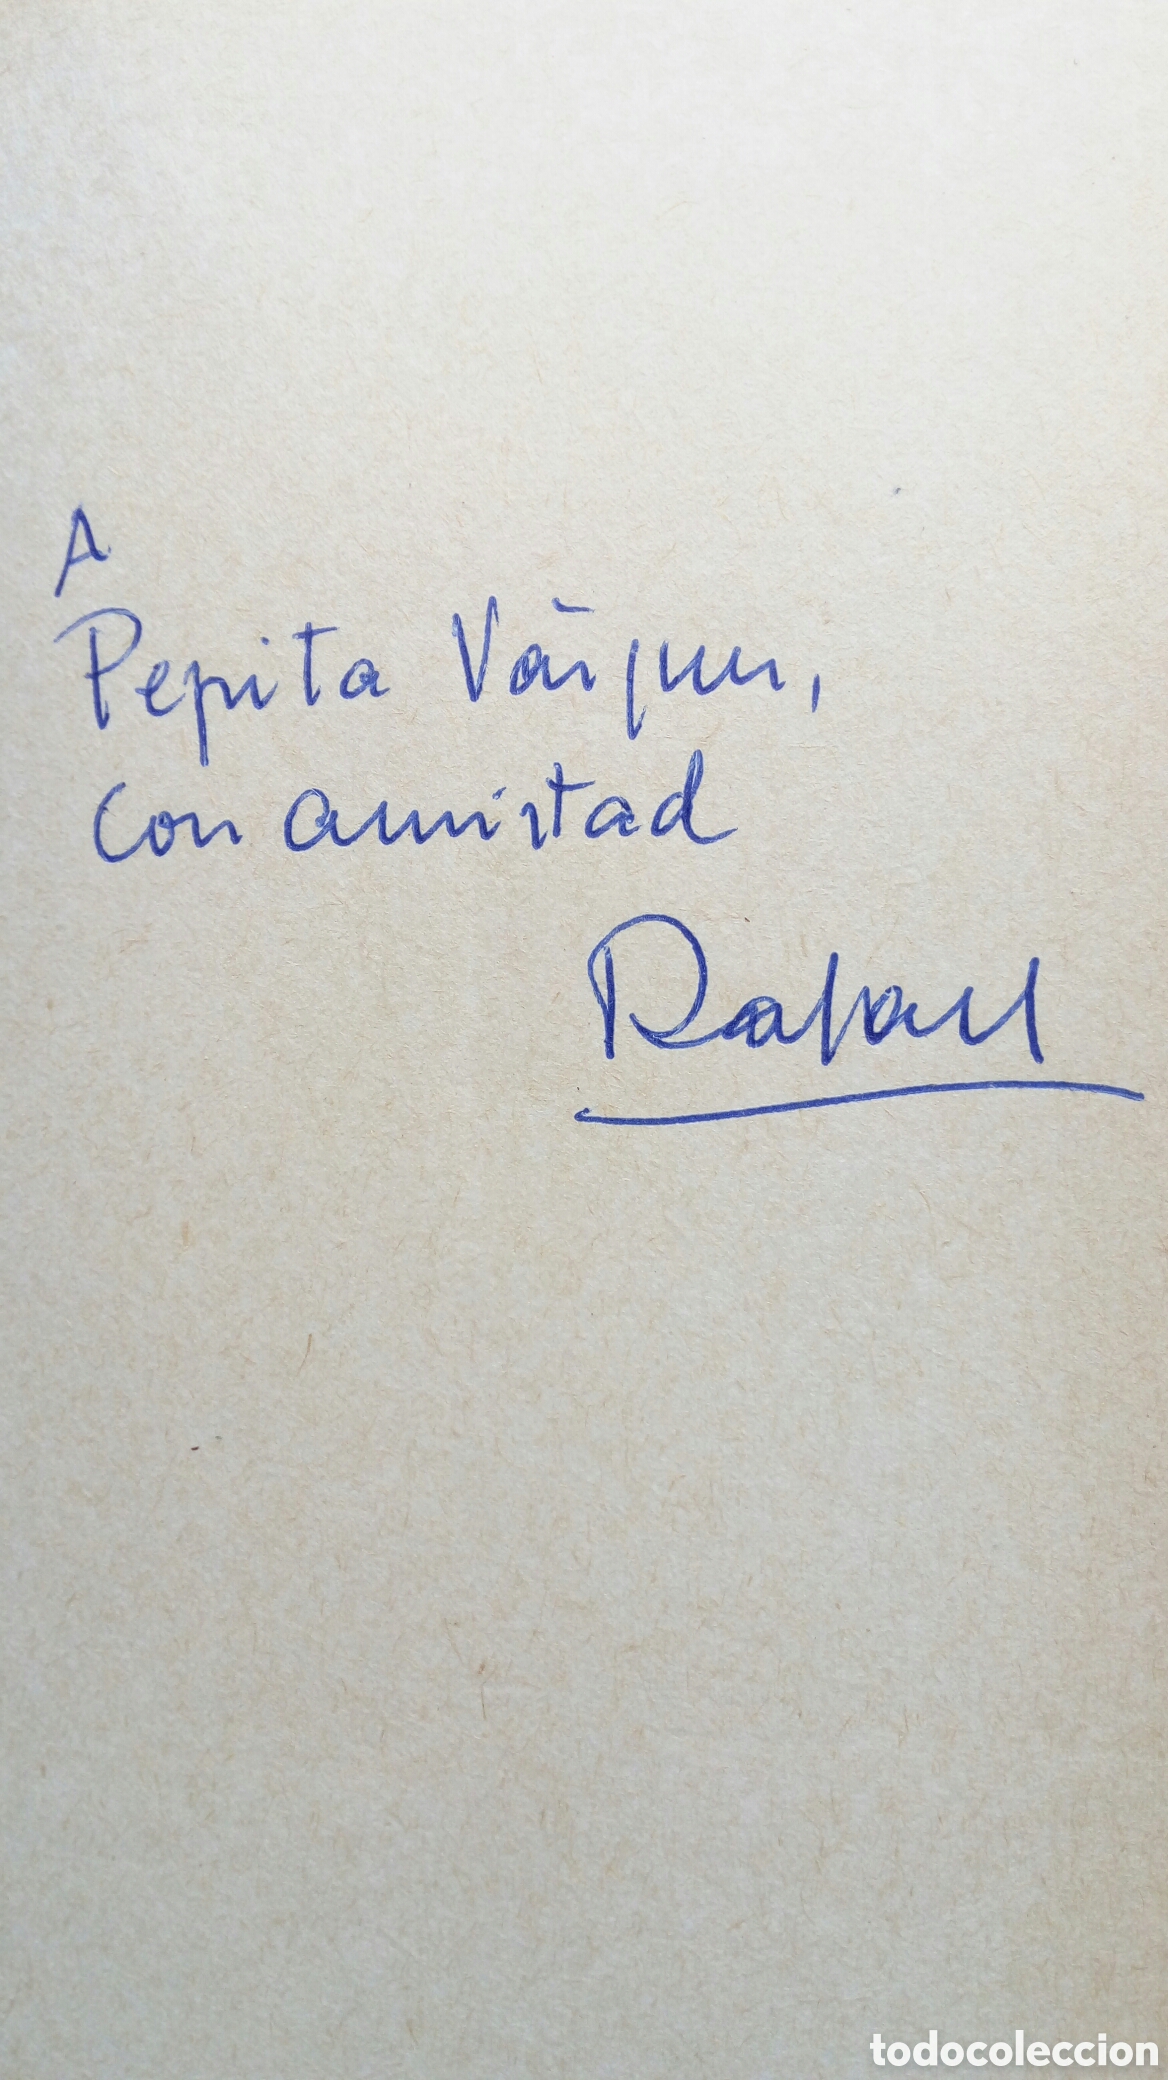 A
Pepita Vázquez,
con amistad
Rafael
todocoleccion